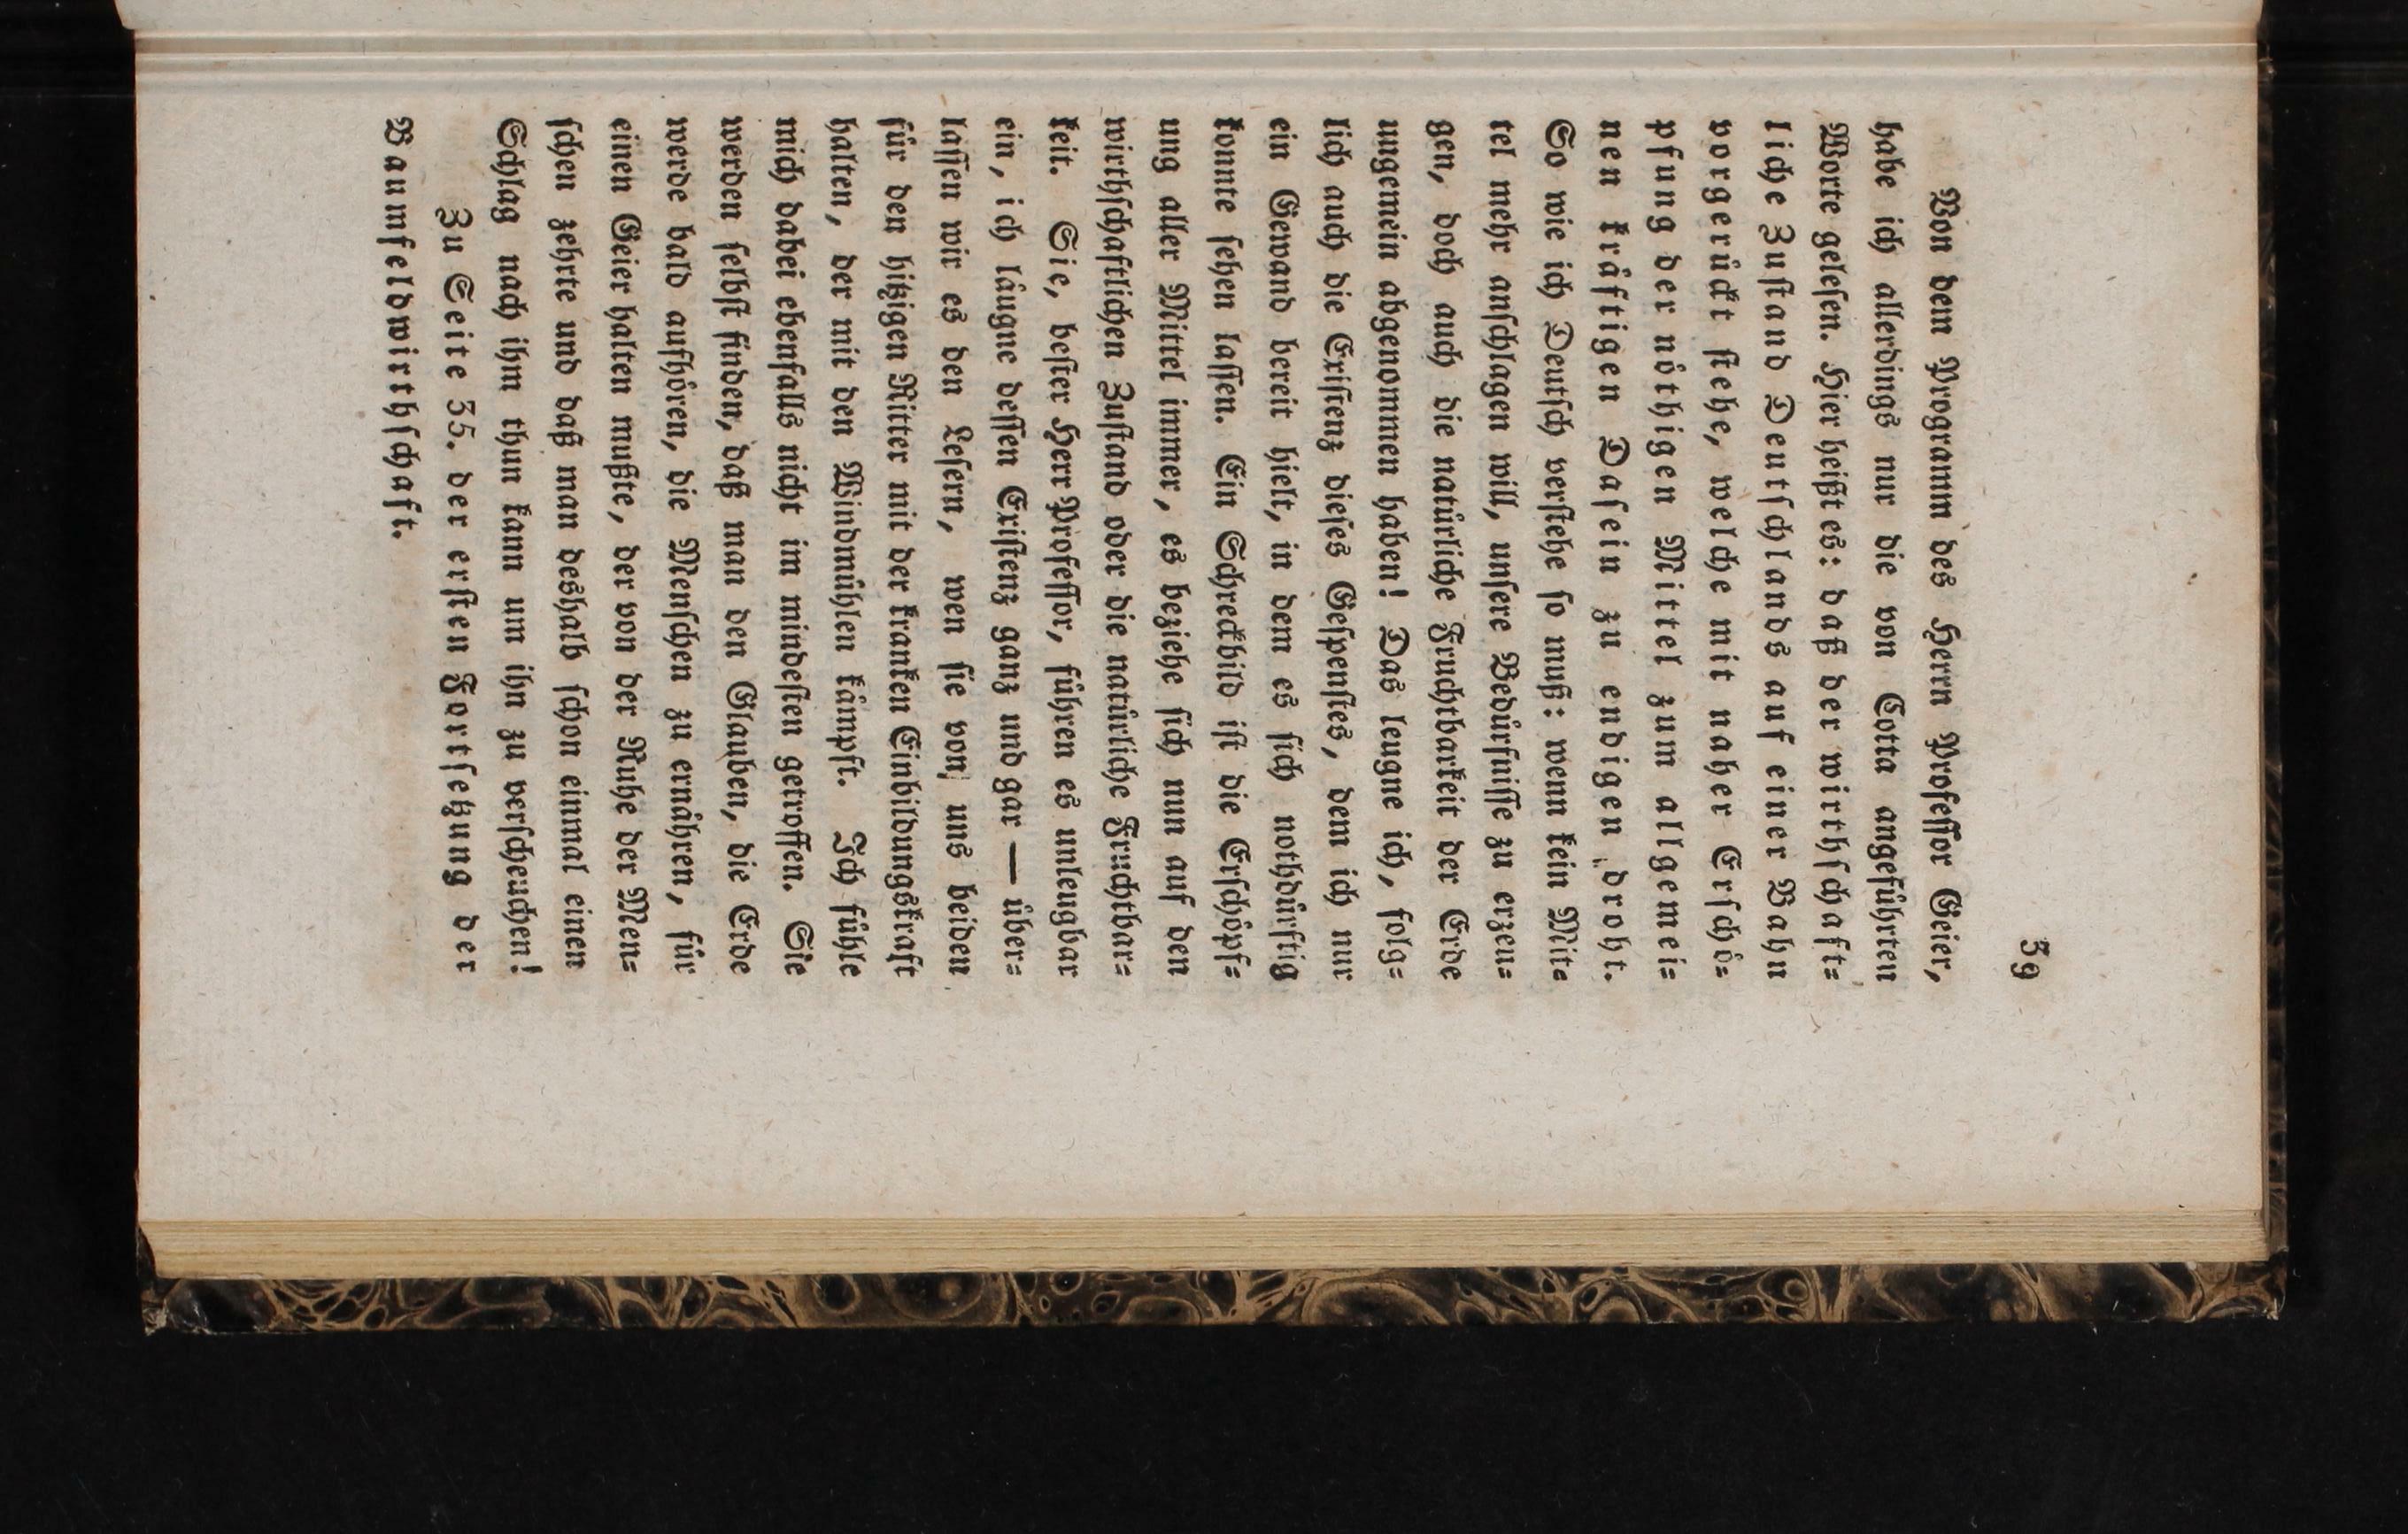 39
Von dem Programm des Herrn Professor Geier,
habe ich allerdings nur die von Cotta angeführten
Worte gelesen. Hier heißt es: daß der wirthschaft=
liche Zustand Deutschlands auf einer Bahn
vorgerückt stehe, welche mit naher Erschö=
pfung der nöthigen Mittel zum allgemei=
nen kräftigen Dasein zu endigen droht.
So wie ich Deutsch verstehe so muß: wenn kein Mit=
tel mehr anschlagen will, unsere Bedürfnisse zu erzeu=
gen, doch auch die natürliche Fruchtbarkeit der Erde
ungemein abgenommen haben! Das leugne ich, folg=
lich auch die Existenz dieses Gespenstes, dem ich nur
ein Gewand bereit hielt, in dem es sich nothdürftig
konnte sehen lassen. Ein Schreckbild ist die Erschöpf=
ung aller Mittel immer, es beziehe sich nun auf den
wirthschaftlichen Zustand oder die natürliche Fruchtbar=
keit. Sie, bester Herr Professor, führen es unleugbar
ein, ich läugne dessen Existenz ganz und gar — über=
lassen wir es den Lesern, wen sie von uns beiden
für den hitzigen Ritter mit der kranken Einbildungskraft
halten, der mit den Windmühlen kämpft. Ich fühle
mich dabei ebenfalls nicht im mindesten getroffen. Sie
werden selbst finden, daß man den Glauben, die Erde
werde bald aufhören, die Menschen zu ernähren, für
einen Geier halten mußte, der von der Ruhe der Men=
schen zehrte und daß man deshalb schon einmal einen
Schlag nach ihm thun kann um ihn zu verscheuchen!
Zu Seite 35. der ersten Fortsetzung der
Baumfeldwirthschaft.